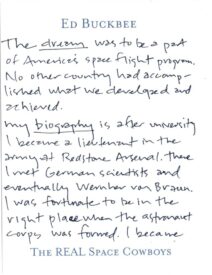 ED BUCKBEE
The dream was to be a part
of America's space flight program.
No other country had accomp-
lished what we developed and
achieved.
my biography is after university
I became a lieutenant in the
army at Redstone Arsenal. There
I met German scientists and
eventually Wernher von Braun.
I was fortunate to be in the
right place when the astronaut
corps was formed. I became
THE REAL SPACE COWBOYS